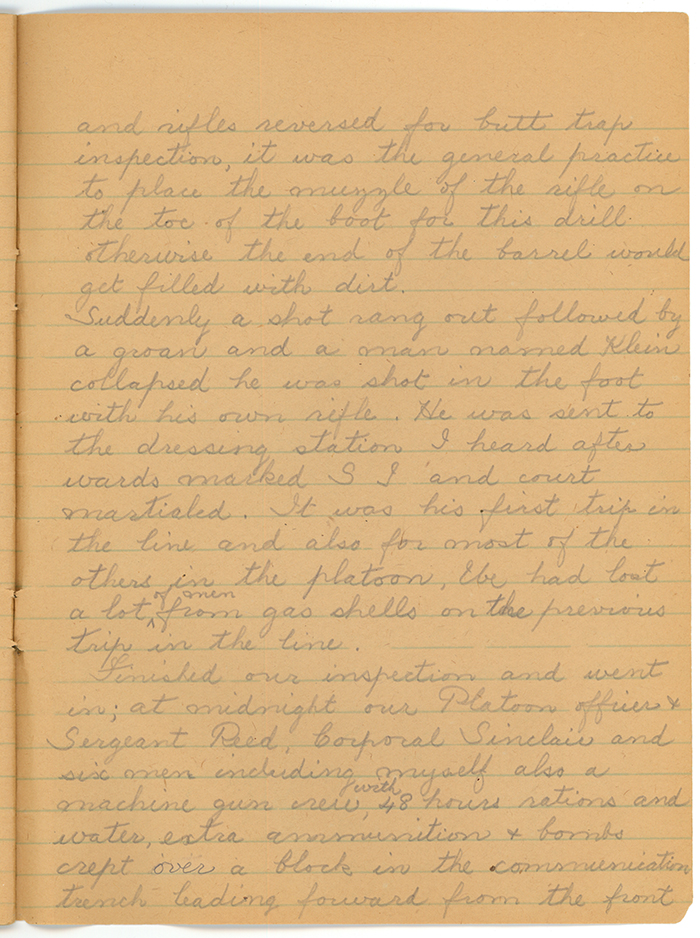 and rifles reversed for butt trap
inspection, it was the general practice
to place the muzzle of the rifle on
the toe of the boot for this drill
otherwise the end of the barrel would
get filled with dirt.
Suddenly a shot rang out followed by
a groan and a man named Klein
collapsed he was shot in the foot
with his own rifle. He was sent to
the dressing station I heard after
wards marked S I and court
martialed. It was his first trip in
the line and also for most of the
others in the platoon, we had lost
a lot of men from gas shells on the previous
trip in the line.
Finished our inspection and went
in; at midnight our Platoon officer &
Sergeant Reed, Corporal Sinclair and
six men including myself also a
machine gun crew, with 48 hours rations and
water, extra ammunition & bombs
crept over a block in the communication
trench leading forward from the front